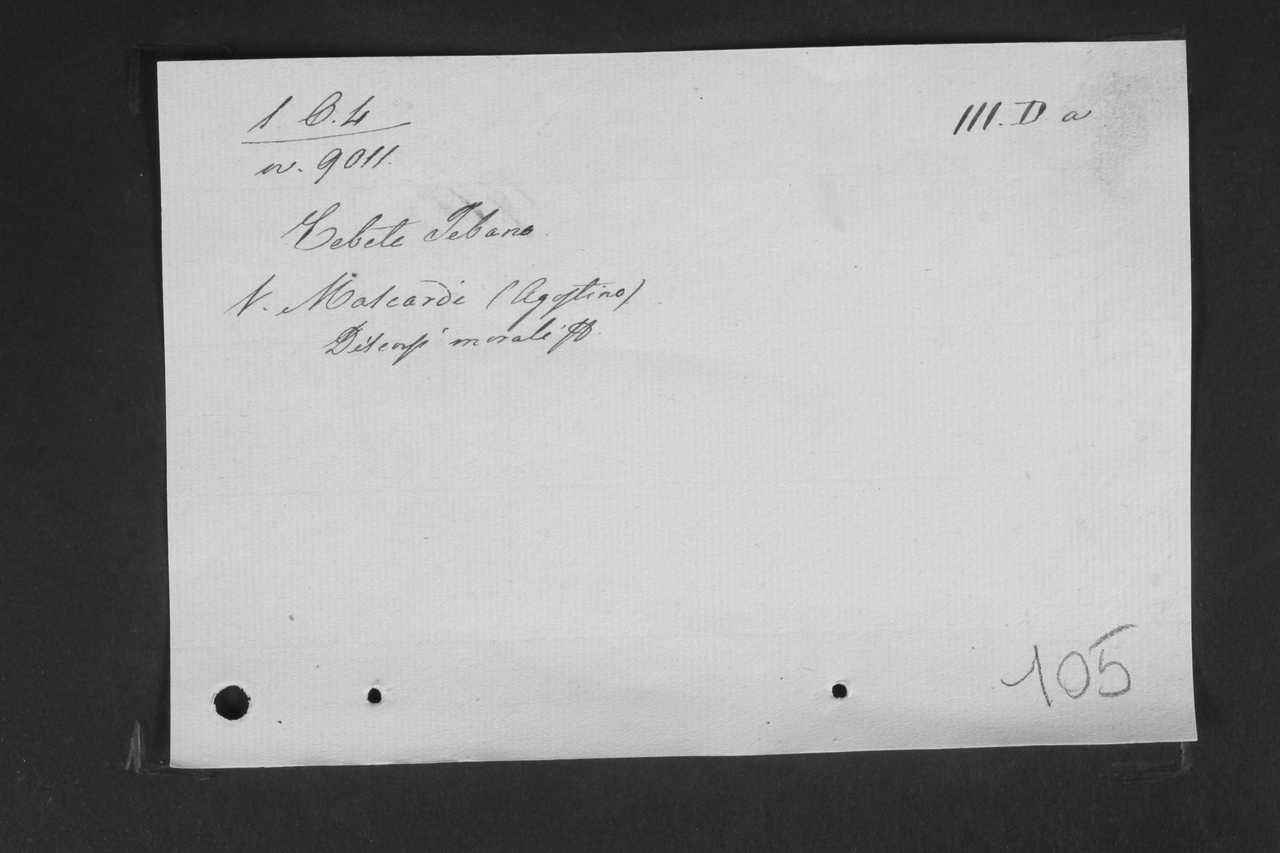 1 C. 4
III. D a
n. 9011.
Cebete Tebano
V. Mascardi (Agostino)
Discorsi morali
105